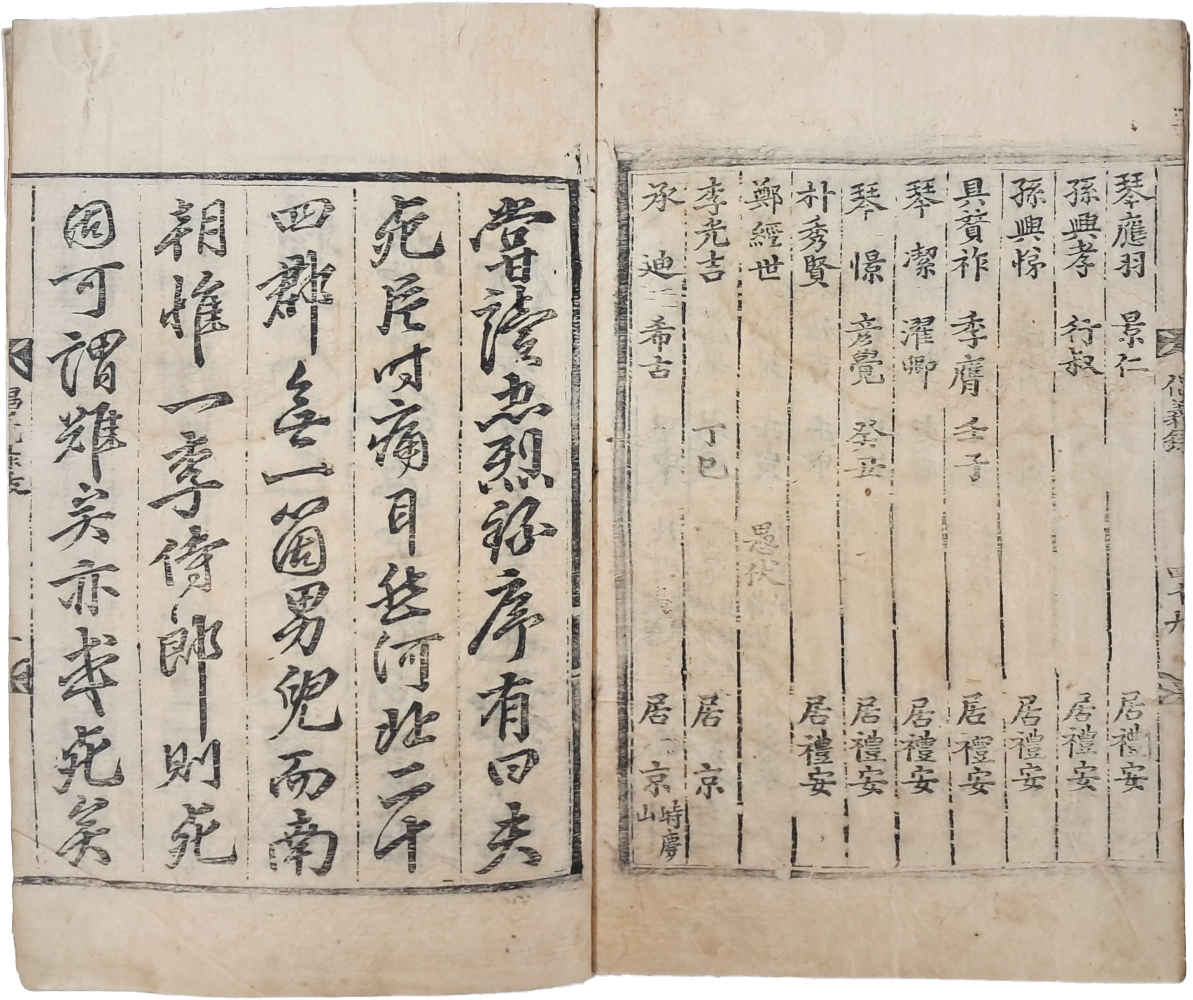 倡義錄
琴應羽 景仁 居禮安
孫興孝 行叔 居禮安
孫興悌 居禮安
具 祚 季膺 壬子 居禮安
琴 潔 濯卿 居禮安
琴 憬 彦覺 癸丑 居禮安
朴秀賢 居禮安
鄭經世 愚伏
李光吉 丁巳 居 京
承 迪 希古 居 京 時慶山
嘗讀忠烈錄序有曰夫
死臣 痛 然河北二十
四郡無一箇男兒而南
朝惟一李侍郎則死
固可謂難矣亦 死矣